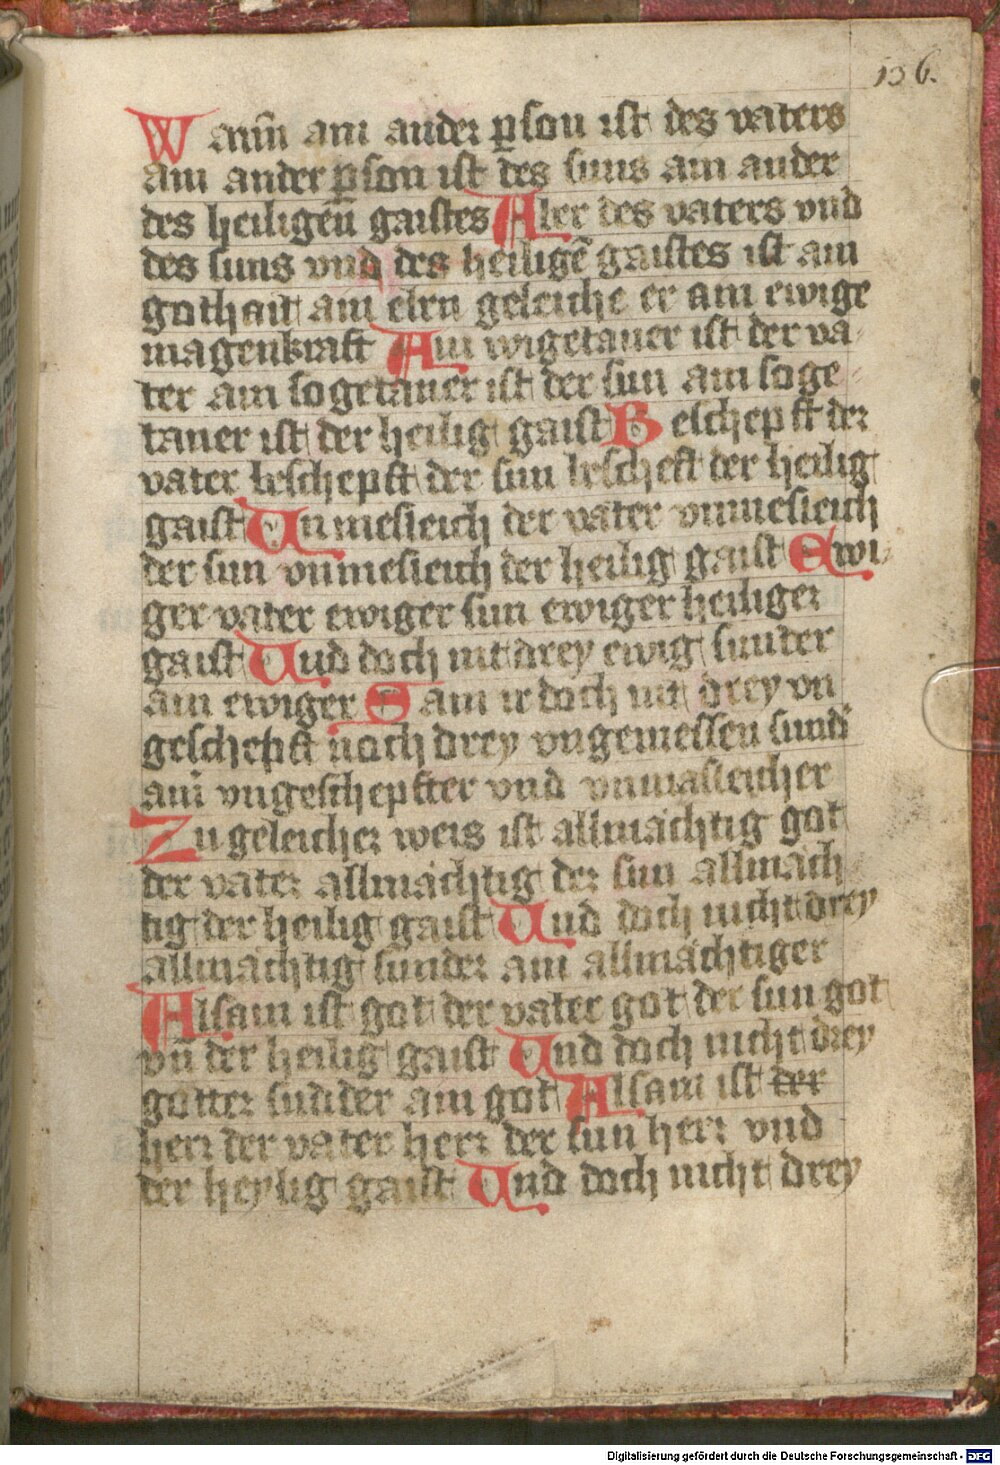 136.
Wann ain ander p̱son ist des vaters
ain ander p̱son ist des suns ain ander
des heiligen̄ gaistes Aber des vaters vnd
des suns vnd des heiligē gaistes ist ain
gothait ain eben geleiche er ain ewige
magenkraft Ain wigetaner ist der va-
ter ain sogetaner ist der sun ain soge-
taner ist der heilig gaist Beschepft der
vater beschepft der sun bescheft der heilig
gaist Unmesleich der vater vnmesleich
der sun vnmesleich der heilig gaist Ewi-
ger vater ewiger sun ewiger heiliger
gaist Und doch nit drey ewig sunder
ain ewiger Sam ir doch nit drey vn
geschepft noch drey vngemessen sund
ain vngeschepfter vnd vnmasleicher
Zu geleicher weis ist allmächtig got
der vater allmächtig der sun allmäch
tig der heilig gaist Und doch nicht drey
allmächtig sunder ain allmächtiger
Alsam ist got der vater got der sun got
vn̄ der heilig gaist Und doch nicht drey
götter sudder ain got Alsam ist der
herr der vater herr der sun herr vnd
der heylig gaist Und doch nicht drey
Digitalisierung gefördert durch die Deutsche Forschungsgemeinschaft - DFG